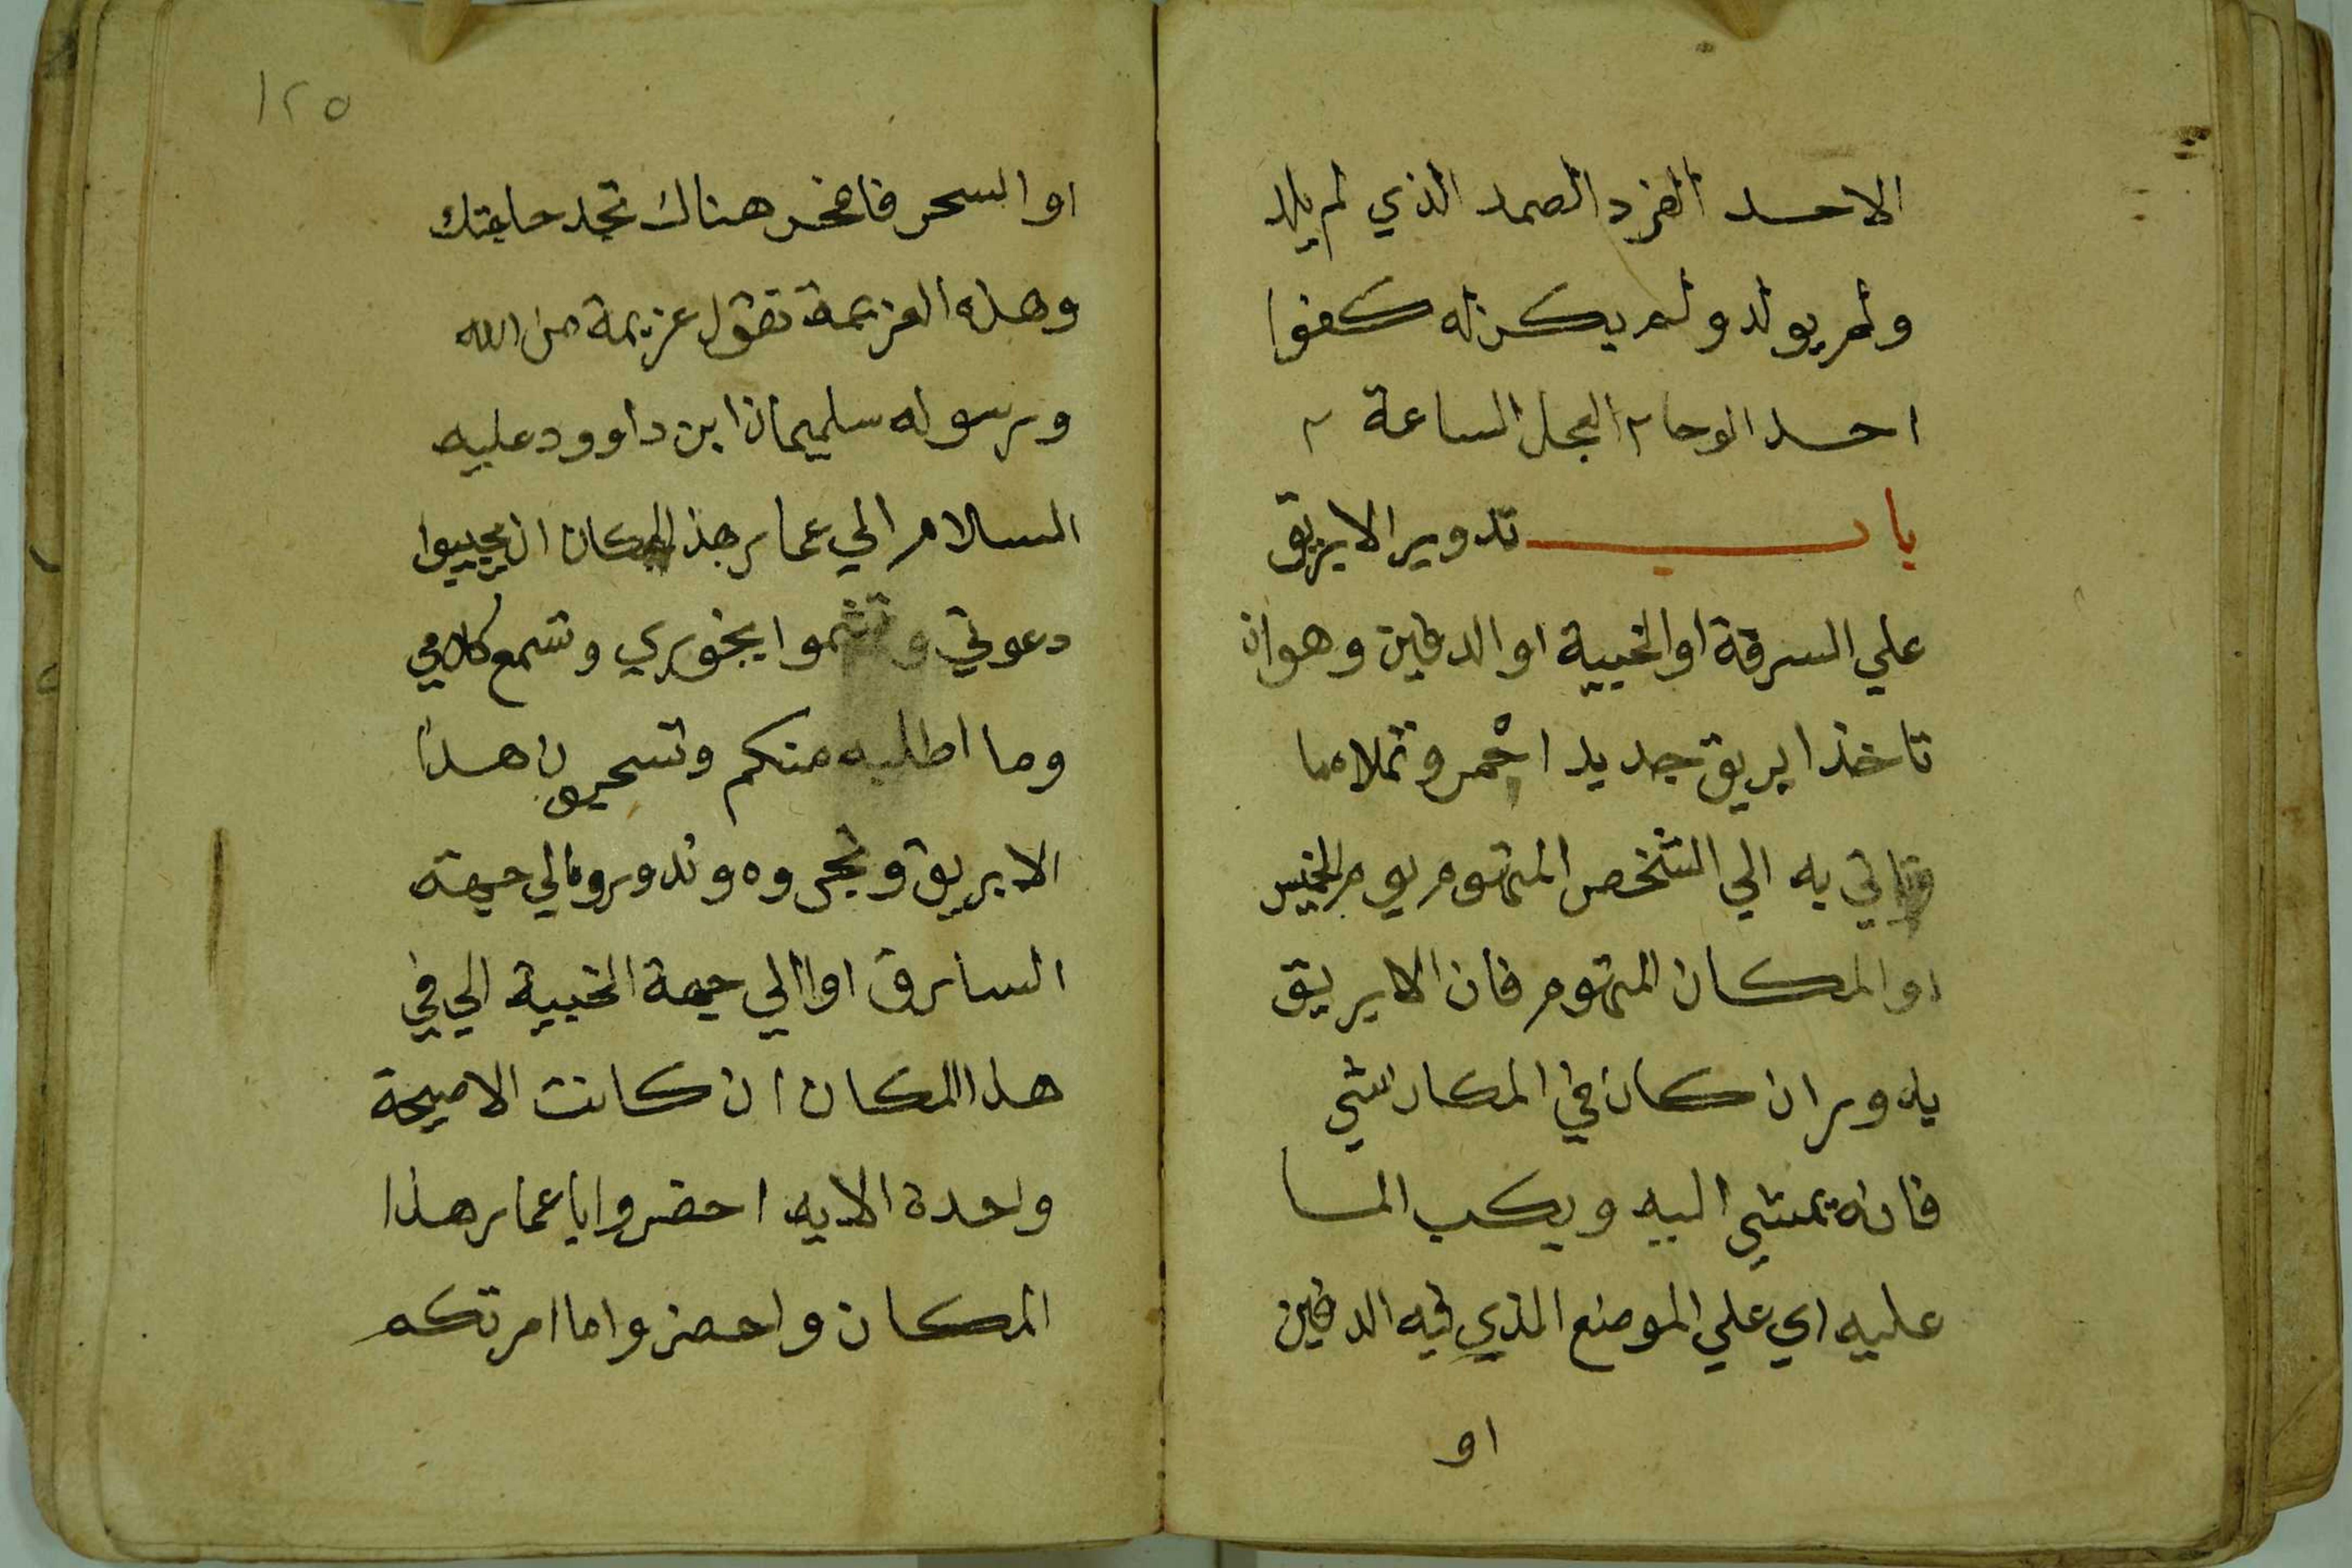 الاحد الفرد الصمد الذي لم يلد
ولم يولد ولم يكن له كفوا
احد الوحا ٢ العجل الساعة ٢
باب تدوير الابريق
علي السرقة او الخبية او الدفين وهو ان
تاخذ ابريق جديد احْمر وتملاه ما
وتاتي به الي الشخص المتهوم يوم الخميس
او المكان المتهوم فان الابريق
يدور ان كان في المكان شي
فانه يمشي اليه ويكب الما
عليه اي علي الموضع الذي فيه الدفين
او
١٢٥
او السحر فاحفر هناك تجد حاجتك
وهذه العزيمة تقول عزيمة من الله
ورسوله سليمان ابن داوود عليه
السلام الي عمار هذ المكان ان يجيبوا
دعوتي وتشموا بخوري وتسمع كلامي
وما اطلبه منكم وتسحبون هذا
الابريق وتجروه وتدوروه الي جهة
السارق او الي جهة الخبية الي في
هذا المكان ان كانت الا صيحة
واحدة الايه احضروا يا عمار هذا
المكان واحضروا ما امرتكم